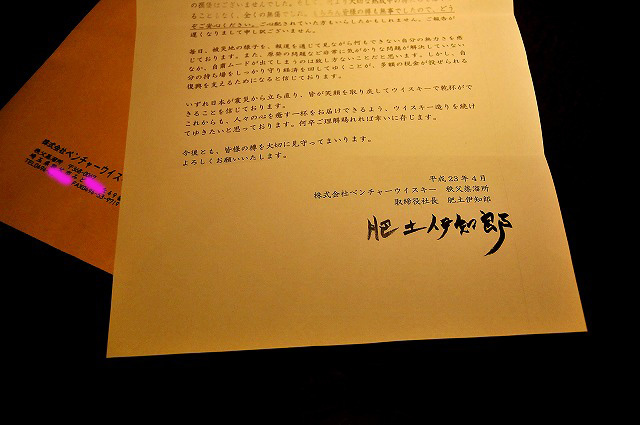 の損傷はございませんでした。そして、何より大切な熟成中の
ることなく、全くの無傷でした。もちろん皆様の樽も無事でしたので、どう
ぞご安心ください。ご心配されていた方もいらしたかもしれません。ご報告が
遅くなりまして申し訳ございません。
毎日、被災地の様子を、報道を通じて見ながら何もできない自分の無力さを感
じております。また、原発の問題など非常に気がかりな問題が解決していない
なか、自粛ムードが出てしまうのは致し方ないことだと思います。しかし、自
分の持ち場をしっかり守り経済を回してゆくことが、多額の税金が投ぜられる
復興を支えるためになると信じております。
いずれ日本が震災から立ち直り、皆が笑顔を取り戻してウイスキーで乾杯がで
きることを信じております。
これからも、人々の心を癒す一杯をお届けできるよう、ウイスキー造りを続け
てゆきたいと思っております。何卒ご理解賜れれば幸いに存じます。
今後とも、皆様の樽を大切に見守ってまいります。
よろしくお願いいたします。
平成23年4月
株式会社ベンチャーウイスキー 秩父蒸溜所
取締役社長 肥土伊知郎
肥土伊知郎
株式会社ベンチャーウイス
秩父蒸溜所